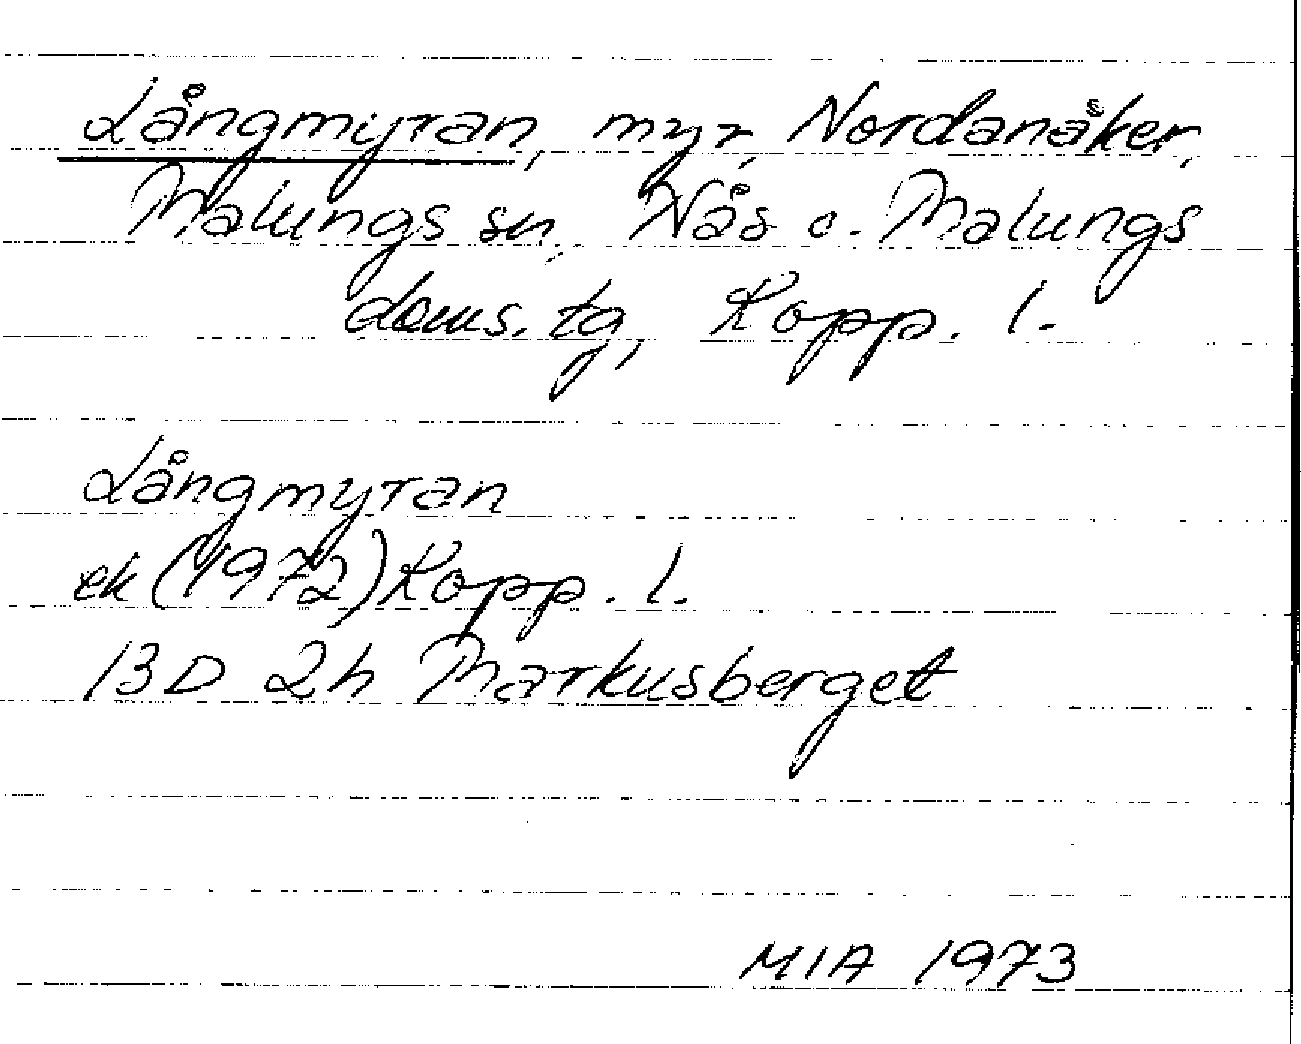 Långmyran, myr, Nordanåker,
Malungs sn, Nås o. Malungs
doms. tg, Kopp. l.
Långmyran
ek (1972) Kopp. l.
13D 2h Markusberget
MIA 1973